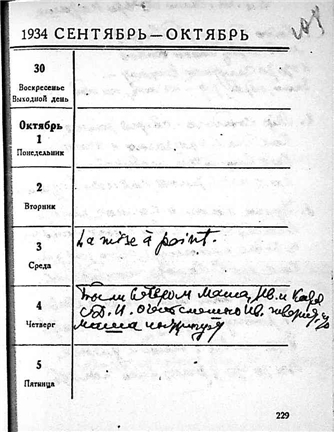 1934 СЕНТЯБРЬ — ОКТЯБРЬ
30
Воскресенье
Выходной день
Октябрь
1
Понедельник
2
Вторник
3
Среда
La mise à point.
4
Четверг
Были вечером Маша, Ив. и Каро
Маша
5
Пятница
229